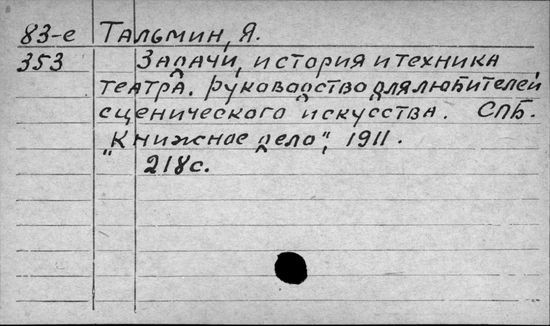 83-е Тальмин, Я.
353 Задачи, история и техника
театра. Руководство для любителей
сценического искусства. СПБ.
"Книжное дело", 1911.
218с.